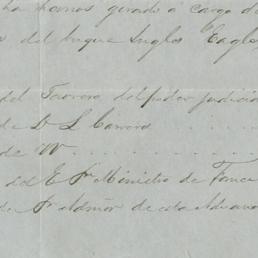 ha hemos girado á cargo d
s del buque Ingles Eagle
del Tesorero del poder judicia
de D L Carrera
de "
del E Sr Ministro de Fome
de Sr Admor de esta Aduan